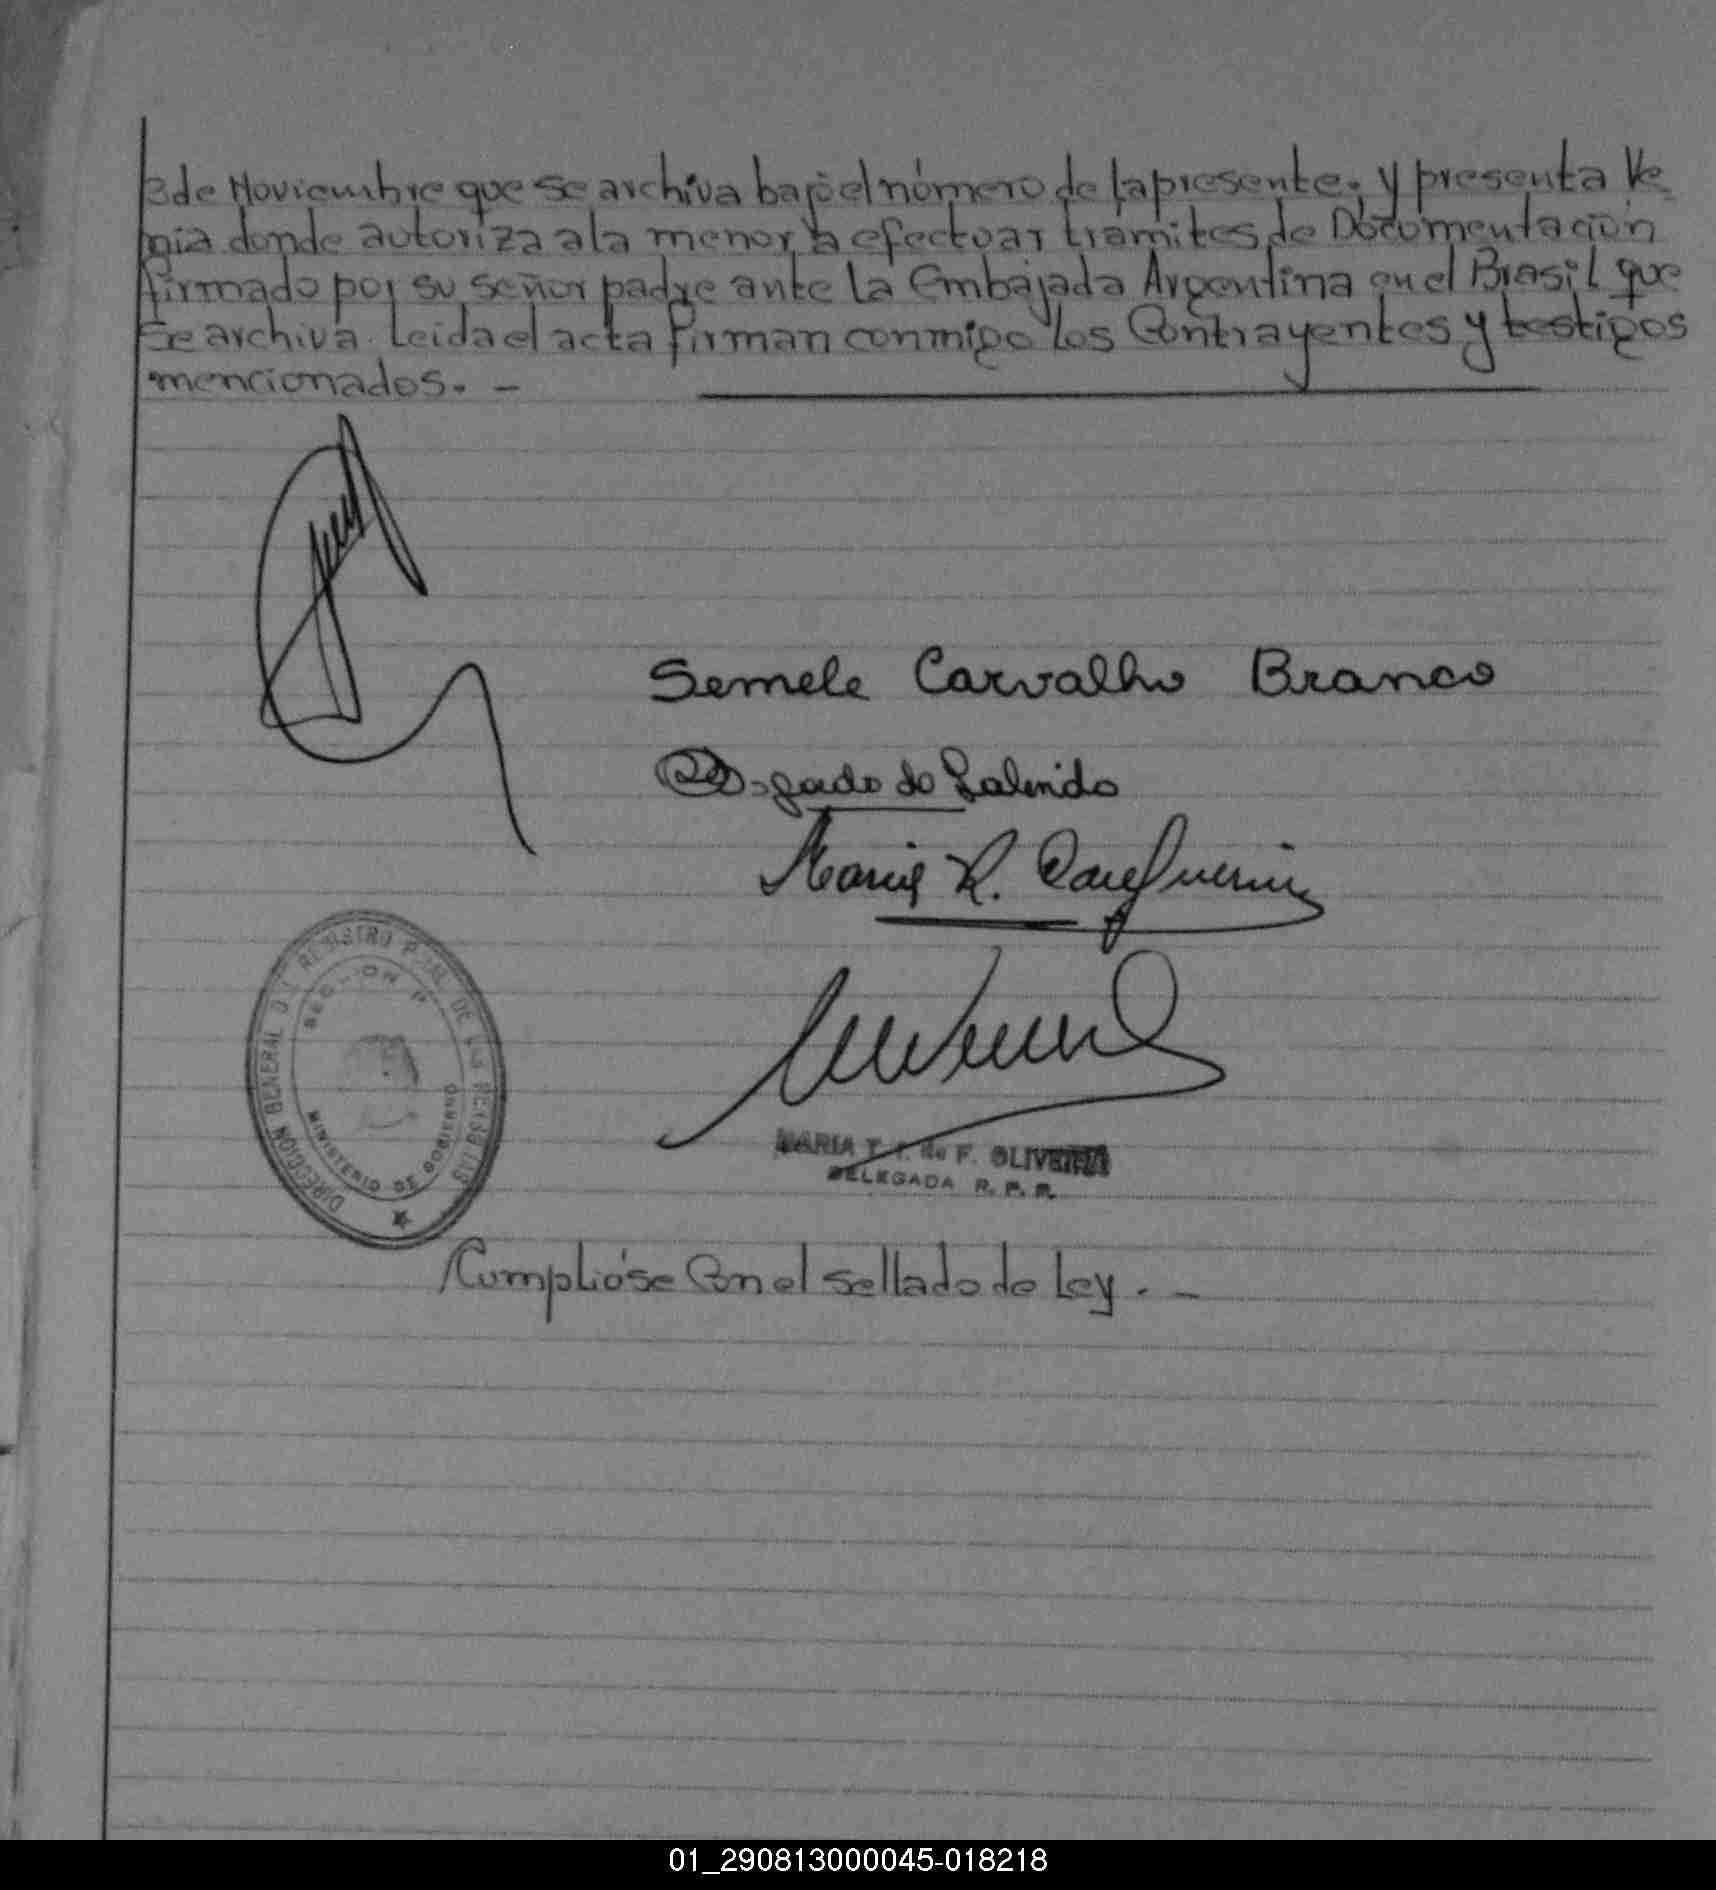 3 de Noviembre que se archiva bajo el número de la presente. y presenta Ve-
nia donde autoriza a la menor a efectuar tramites de Documentación
firmado por su señor padre ante la Embajada Argentina en el Brasil que
se archiva. Leida el acta firman conmigo los Contrayentes y testigos
mencionados. -
Semele Carvalho Branco
de Galindo
Maria R.
DIRECCION GENERAL DEL REGISTRO P. DE LAS PERSONAS
SECCION
MINISTERIO DE GOBIERNO
MARIA T. de F. OLIVEIRA
DELEGADA R. P. P.
Cumplióse Con el sellado de Ley. -
01_290813000045-018218